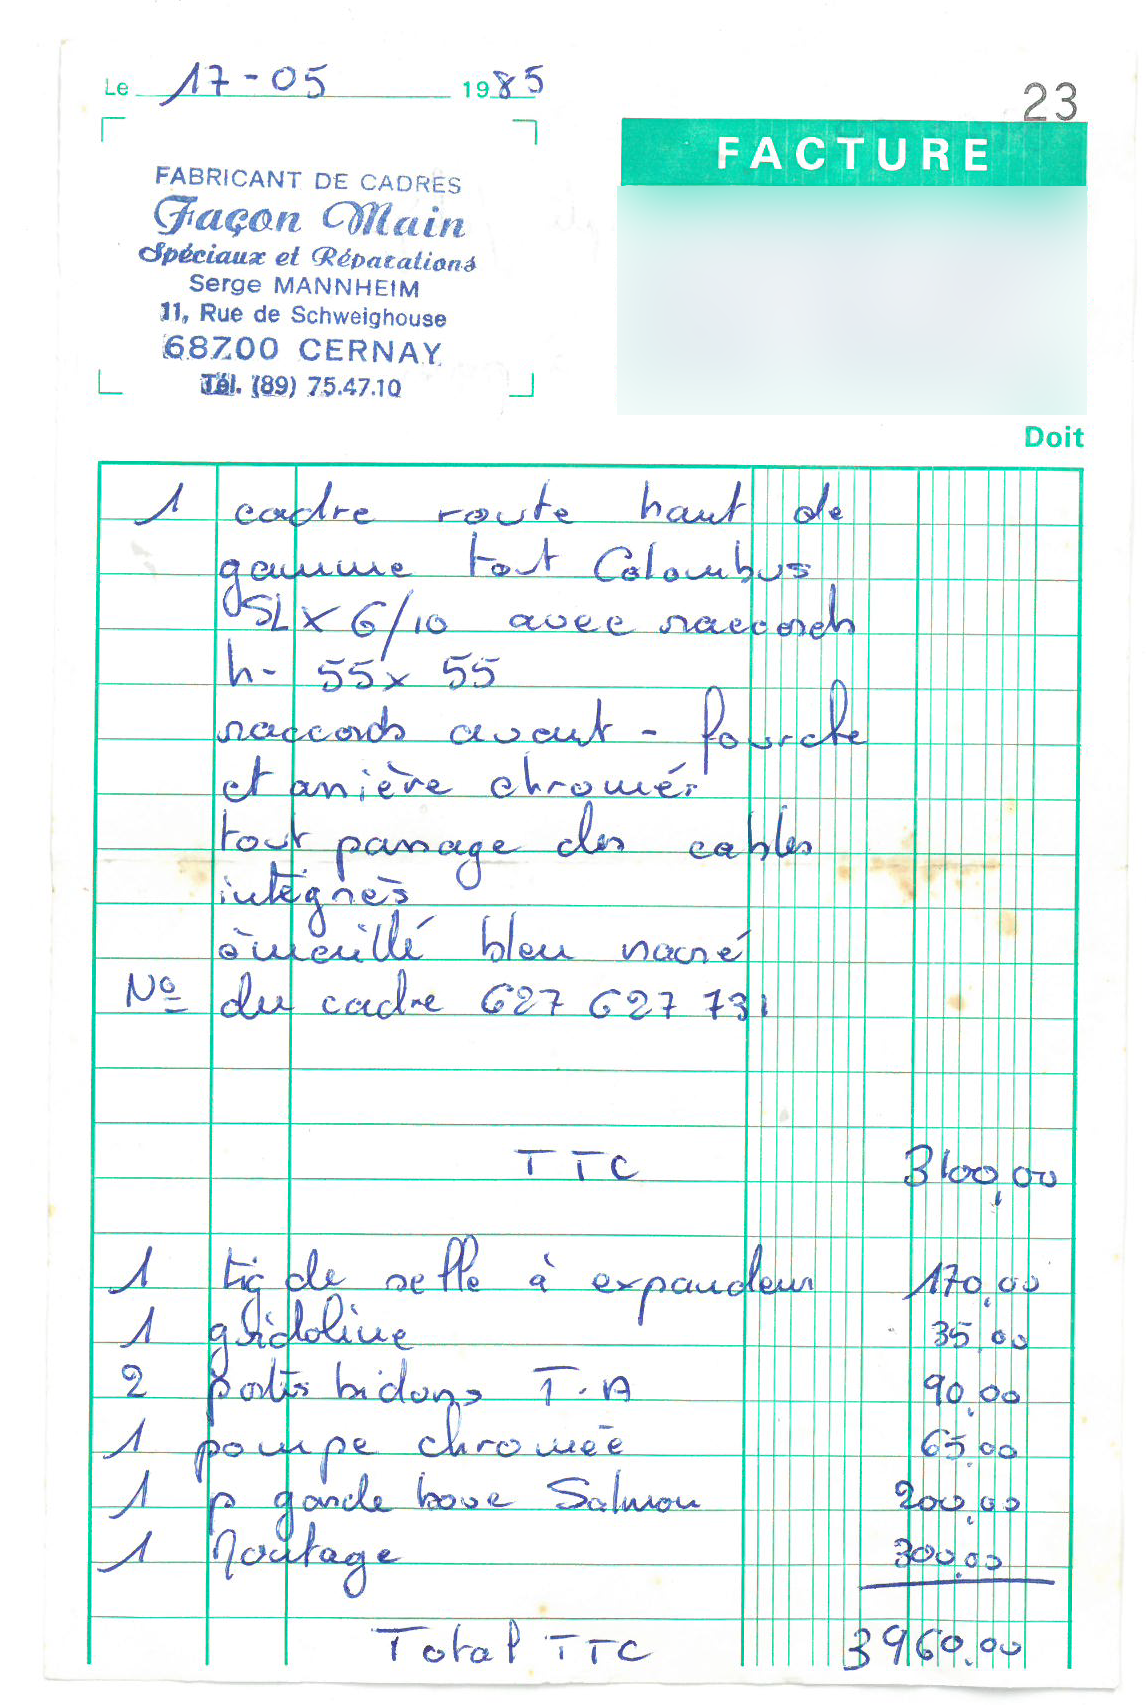 Le 17-05 1985
23
FACTURE
FABRICANT DE CADRES
Façon Main
Spéciaux et Réparations
Serge MANNHEIM
11, Rue de Schweighouse
68700 CERNAY
Tél. (89) 75.47.10
Doit
1 cadre route haut de
gamme tout Colombus
SLX 6/10 avec raccords
h- 55x 55
raccords avant - fourche
et arrière chromés
tout passage des cables
intégrés
émaillé bleu nacré
No du cadre 627 627 731
TTC 3100,00
1 tig de selle à expandeur 170,00
1 guidoline 35,00
2 portes bidons T.A 90,00
1 pompe chromée 65,00
1 p garde boue Salmon 200,00
1 Montage 300,00
Total TTC 3960.00